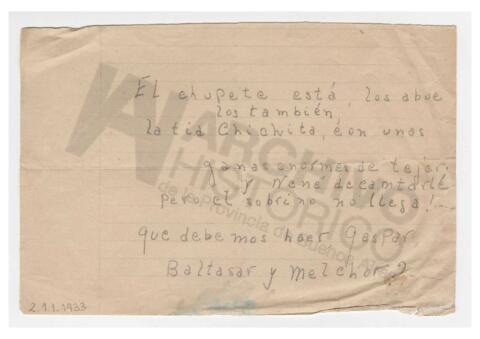 El chupete está, los abue
los también,
la tia Chichita, con unas
ganas enormes de tejer,
y Nené de camtarle
pero el sobrino no llega!..
que debemos haer Gaspar
Baltasar y Melchor?
2.1.1.1933
ARCHIVO
HISTORICO
de la provincia de Buenos Aires